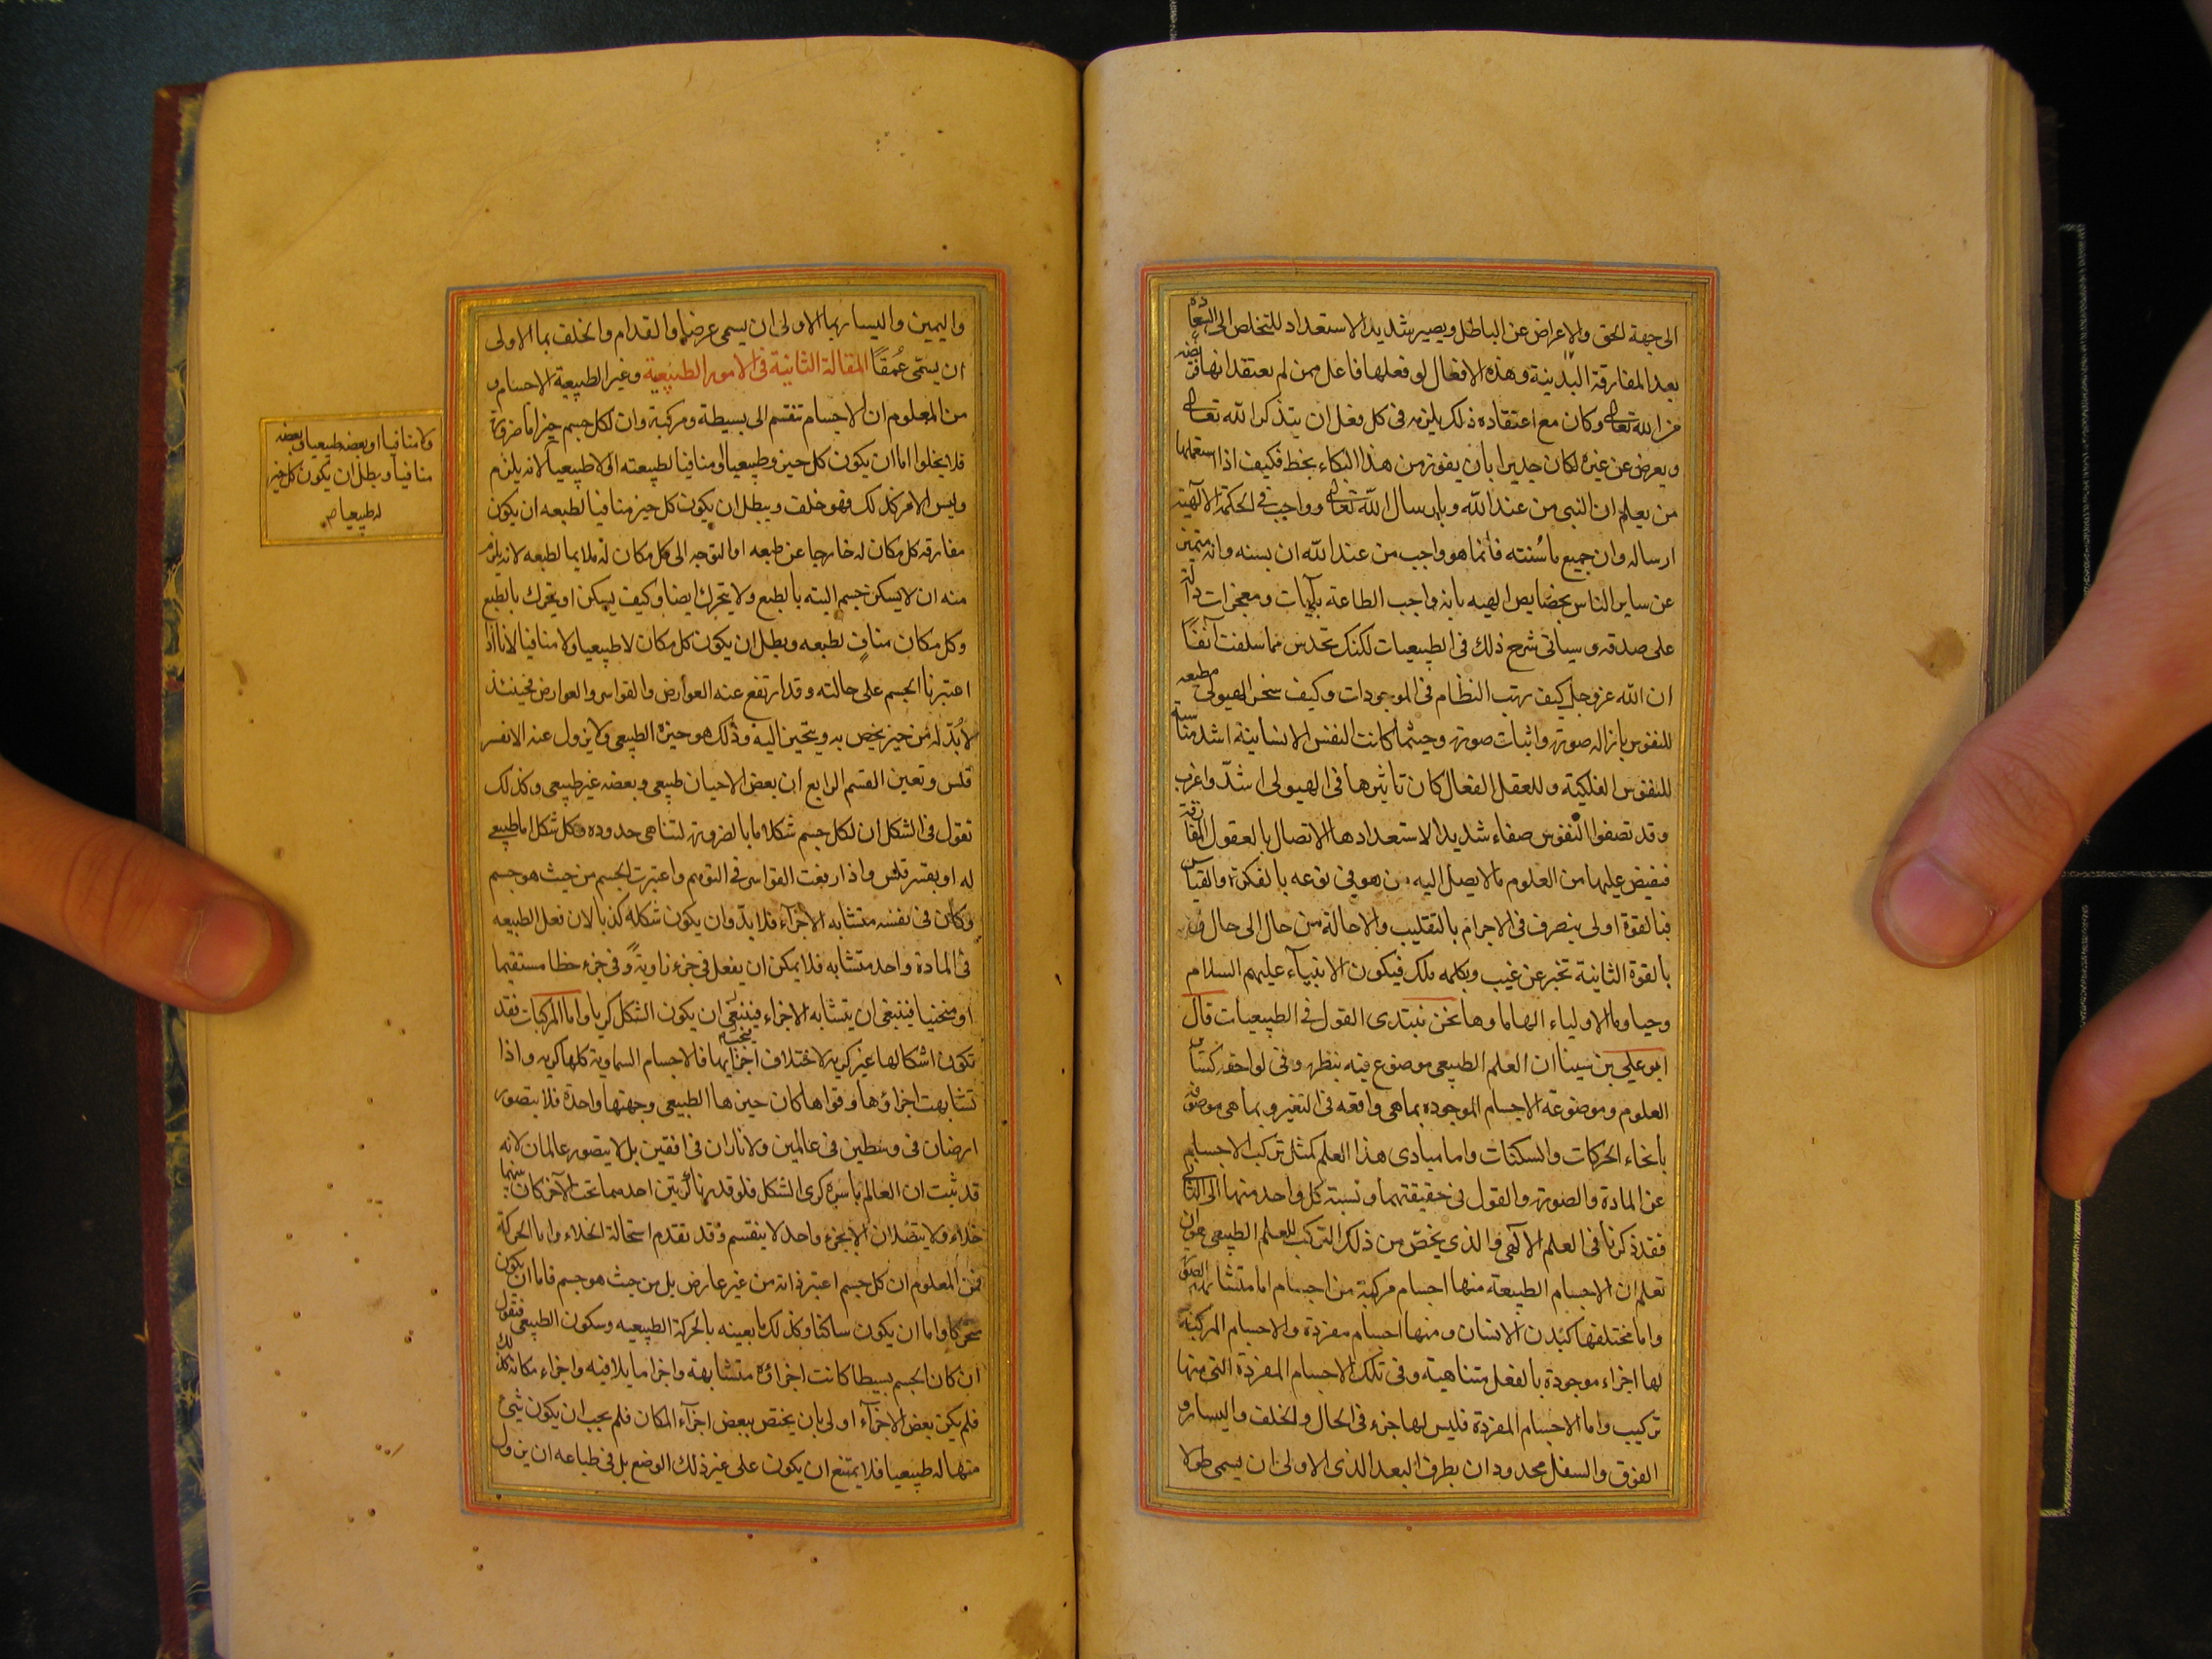 الى جهة الحق والاعراض عن الباطل ويصير شديد الاستعداد للتخلص الى السعادة
بعد المفارقة البدنية وهذه الافعال لو فعلها فاعل ممن لم يعتقد انها فريضة
من الله تعالى وكان مع اعتقاده ذلك يلزمه فى كل فعل ان يتذكر الله تعالى
ويعرض عن غيره لكان جديرا بأن يفوز من هذا الذكاء بحظ فكيف اذا استعملها
من يعلم ان النبى من عند الله وبارسال الله تعالى وواجب فى الحكمة الالهية
ارساله وان جميع ما سنته فانما هو واجب من عند الله ان يسنه وانه متميز
عن ساير الناس بخصايص الهيه بانه واجب الطاعة بآيات ومعجزات دالة
على صدقه وسياتى شرح ذلك فى الطبيعيات لكنك تحدس مما سلفت آنفاً
ان الله عز وجل كيف رتب النظام فى الموجودات وكيف سخر الهيولى مطيعه
للنفوس بازاله صورة واثبات صورة وحيثما كانت النفس الانسانية اشد مناسبة
للنفوس الفلكية وللعقل الفعال كان تاثيرها فى الهيولى اشد واغرب
وقد تصفوا النفوس صفاء شديدا لاستعدادها الاتصال بالعقول المفارقة
فيفيض عليها من العلوم ما لا يصل اليه من هو فى نوعه بالفكرة والقياس
فبالقوة اولى يتصرف فى الاجرام بالتقليب والاحالة من حال الى حال
بالقوة الثانية تخبر عن غيب ويكلمه ملك فيكون الانبياء عليهم السلام
وحيا وما الاولياء الهاما وها نحن نبتدى القول فى الطبيعيات قال
ابو على بن سينا ان العلم الطبيعى موضوع فيه ينظر وفى لواحقه كسائر
العلوم وموضوعه الاجسام الموجوده بما هى واقعه فى التغير وبما هى موصوفة
بأنحاء الحركات والسكنات واما مبادى هذا العلم كمثل تركب الاجسام
عن المادة والصورة والقول فى حقيقتهما ونسبة كل واحد منهما الى الثانى
فقد ذكرنا فى العلم الآلهى والذى يختص من ذلك التركب للعلم الطبيعى هو ان
تعلم ان الاجسام الطبيعة منها اجسام مركبة من اجسام اما متشابهة الصورة
واما مختلفها كبدن الانسان ومنها اجسام مفردة والاجسام المركبة
لها اجزاء موجودة بالفعل متناهية وفى تلك الاجسام المفردة التى منها
تركيب واما الاجسام المفردة فليس لها جزء فى الحال والخلف واليسار و
الفوق والسفل محدودان بطرف البعد الذى الاولى ان يسمى طولا
واليمين واليسار بما الاولى ان يسمى عرضا والقدام والخلف بما الاولى
ان يسمّى عُمقاً المقالة الثانية فى الامور الطبيعية وغير الطبيعية الاجسام و
من المعلوم ان الاجسام تنقسم الى بسيطة ومركبة وان لكل جسم حيزا ما ضرورة
فلا يخلوا اما ان يكون كل حيز وطبيعيا او منافيا لطبيعته الى لا طبيعيا لانه يلزم
وليس الامر كذلك فهو خلف ويبطل ان يكون كل حيز منافيا لطبعه ان يكون
مفارقه كل مكان له خارجا عن طبعه او التوجه الى كل مكان له ملايما لطبعه لانه يلزم
منه ان لا يسكن جسم البته بالطبع ولا يتحرك ايضا وكيف يسكن او يتحرك بالطبع
وكل مكان منافٍ لطبعه ويبطل ان يكون كل مكان لا طبيعيا ولا منافيا لانا اذا
اعتبرنا الجسم على حالته وقد ارتفع عنه العوارض والقواسر والعوارض فحينئذ
لا بُدّ له من حيز يختص به ويتحيز اليه وذلك هو حيزه الطبيعى ولا يزول عنه الا بقسر
قلس وتعين القسم الرابع ان بعض الاحيان طبيعى وبعضه غير طبيعى وكذلك
نقول فى الشكل ان لكل جسم شكلا ما بالضرورة لتناهى حدوده وكل شكل اما طبيعى
له او بقسر قلس واذا رفعت القواسر فى التوهم واعتبرت الجسم من حيث هو جسم
وكان فى نفسه متشابه الاجزآء فلا بدّ وان يكون شكله كذبا لان فعل الطبيعه
فى المادة واحد متشابه فلا يمكن ان يفعل فى جزء زاوية وفى جزء خطا مستقيما
او منحنيا فينبغى ان يتشابه الاجزاء فينبغى ان يكون الشكل كريا واما المركبات فقد
تكون اشكالها غير كرية لاختلاف اجزايها فالاجسام السماوية كلها كريه واذا
تشابهت اجزاؤها وقواها كان حيزها الطبيعى وجهتها واحدة فلا يتصور
ارضان فى وسطين فى عالمين ولا ناران فى افقين بل لا يتصور عالمان لانه
قد ثبت ان العالم باسره كرى الشكل فلو قدر نا كريتين احدهما تحت الآخر كان بينهما
خلاء ولا يتصلان الا بجزء واحد لا ينقسم وقد تقدم استحالة الخلاء واما الحركة
فمن المعلوم ان كل جسم اعتبر ذاته من غير عارض بل من حيث هو جسم فاما ان يكون
متحركا واما ان يكون ساكنا وكذلك ما بعينه بالحركة الطبيعيه وسكون الطبيعى فنقول
ان كان الجسم بسيطا كانت اجزاؤه متشابهة واجزا ما يلاقيه واجزاء مكانه كذلك
فلم يكن بعض الاجزآء اولى بان يختص ببعض اجزآء المكان فلم يجب ان يكون شىء
منها له طبيعيا فلا يمتنع ان يكون على غير ذلك الوضع بل فى طباعه ان يزول
ولا منافيا او بعضه طبيعيا وبعضه
منافيا ويبطل ان يكون كل حيز
له طبيعيا صح